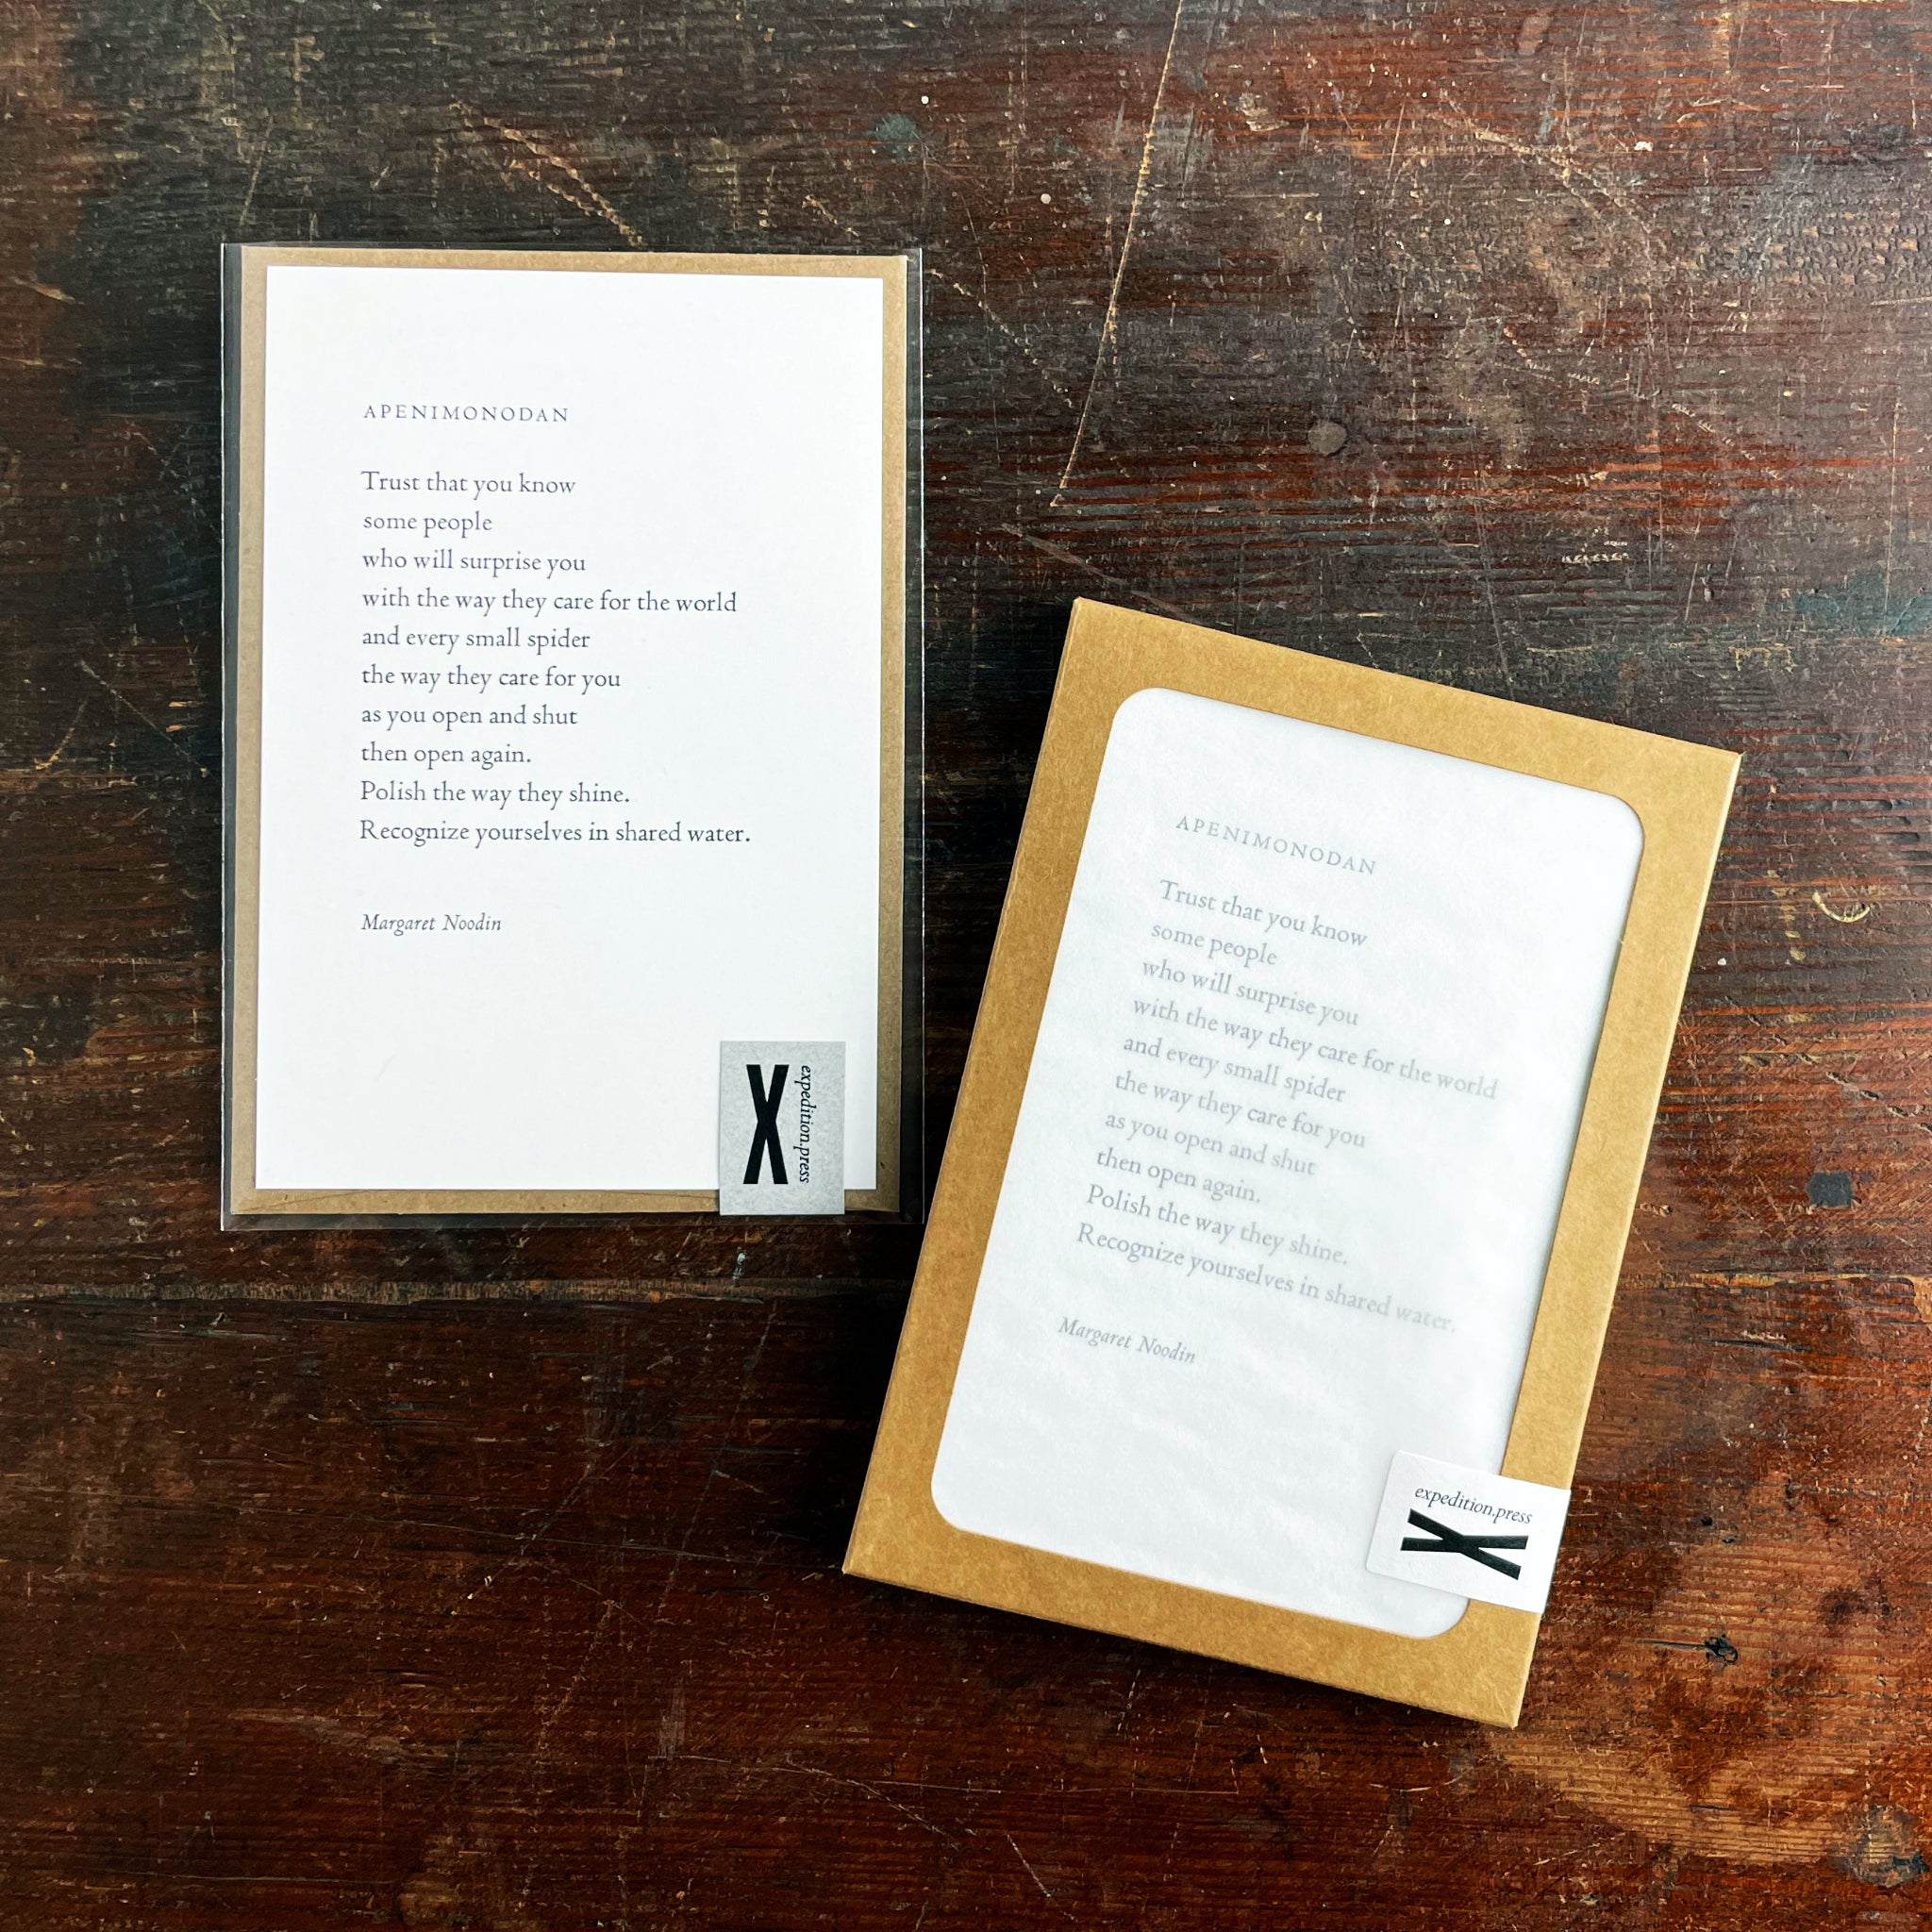 APENIMONODAN
Trust that you know
some people
who will surprise you
with the way they care for the world
and every small spider
the way they care for you
as you open and shut
then open again.
Polish the way they shine.
Recognize yourselves in shared water.
Margaret Noodin
X
expedition.press
APENIMONODAN
Trust that you know
some people
who will surprise you
with the way they care for the world
and every small spider
the way they care for you
as you open and shut
then open again.
Polish the way they shine.
Recognize yourselves in shared water.
Margaret Noodin
expedition.press
X